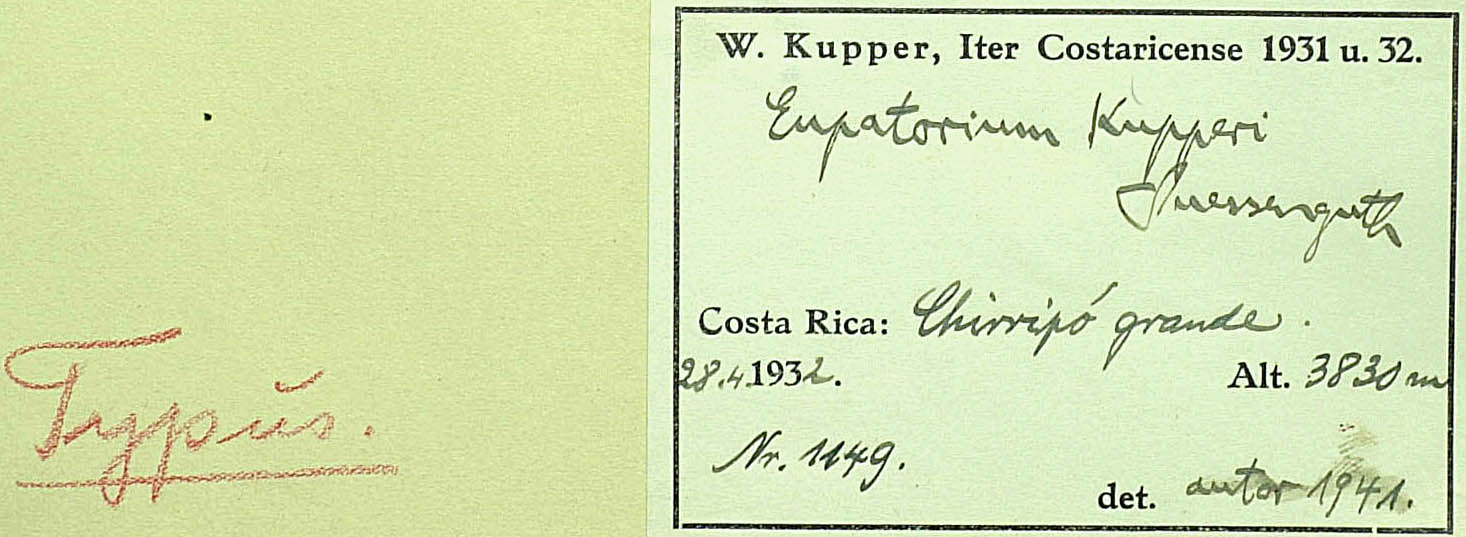 W. Kupper, Iter Costaricense 1931 u. 32.
Eupatorium Kupperi
Suessenguth
Costa Rica: Chirripó grande.
28.4.1932.
Alt. 3830 m
Nr. 1149.
det. autor 1941.
Typus.